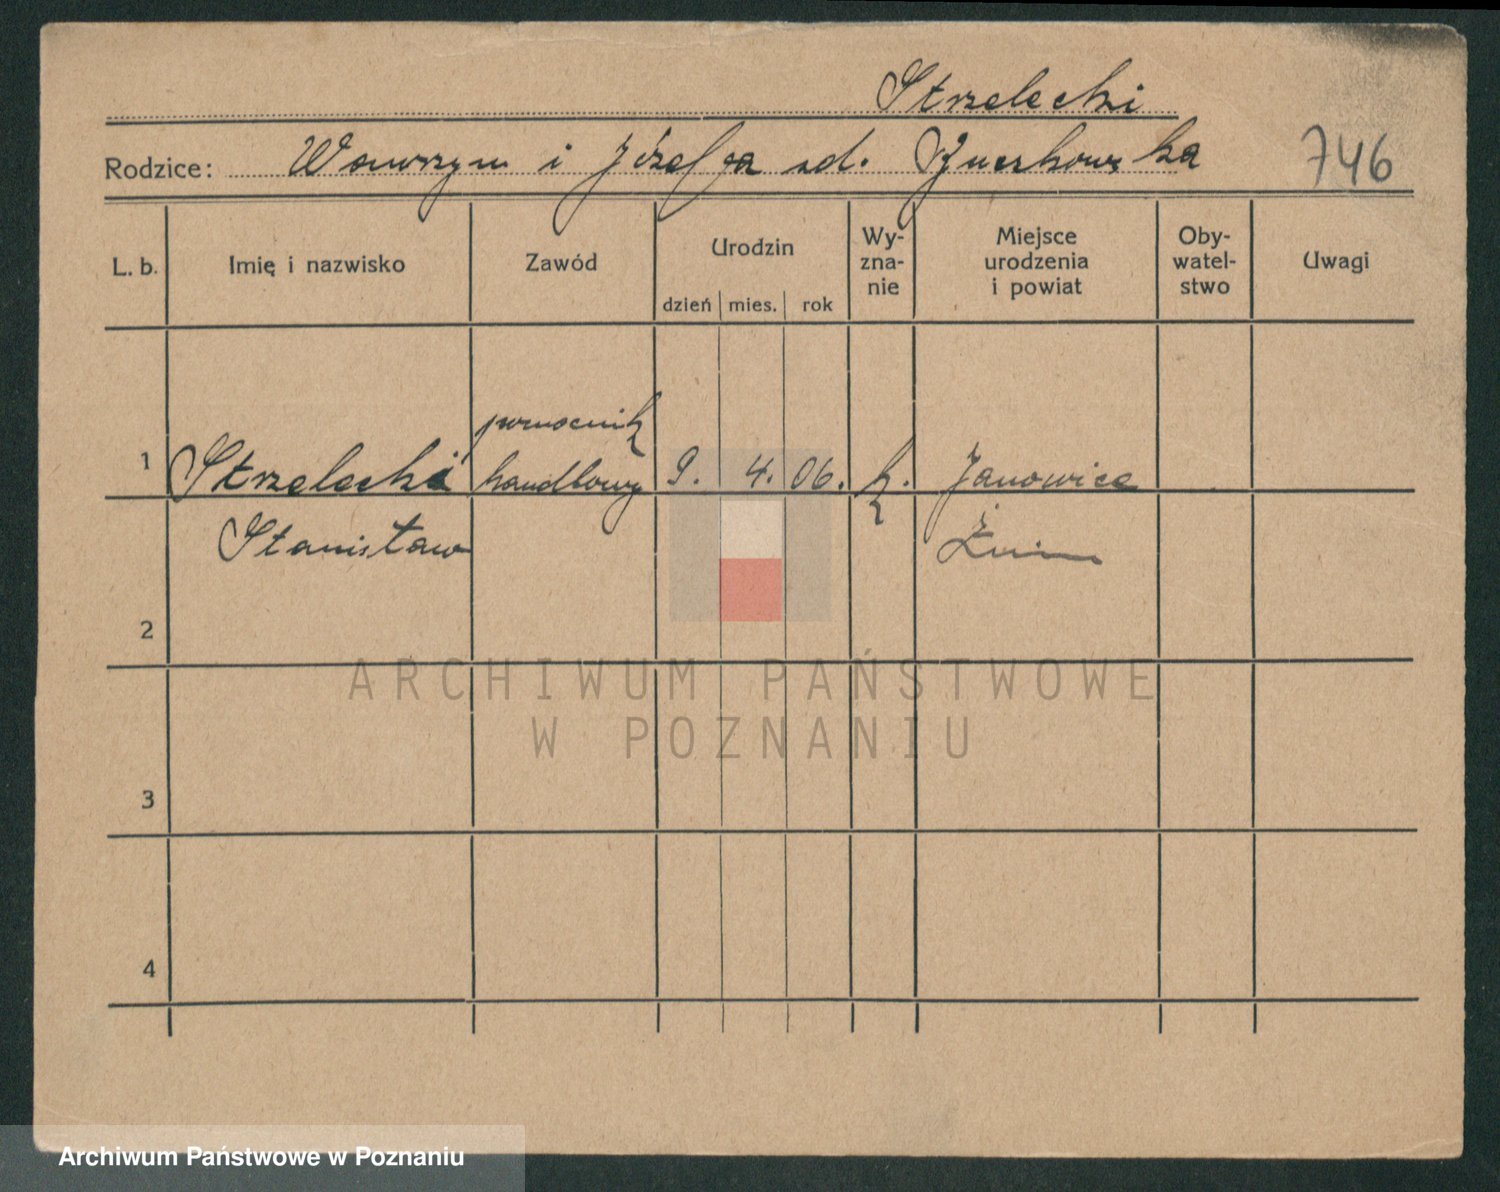 Strzelecki
Rodzice: Wawrzyn i Józefa zd.
746
L. b. Imię i nazwisko Zawód Urodzin dzień mies. rok Wy-zna-nie Miejsce urodzenia i powiat Oby-watel-stwo Uwagi
pomocnik
1 Strzelecki handlowy 9. 4. 06. k. Janowice
Stanisław Żnin
2
ARCHIWUM PAŃSTWOWE
W POZNANIU
3
4
Archiwum Państwowe w Poznaniu